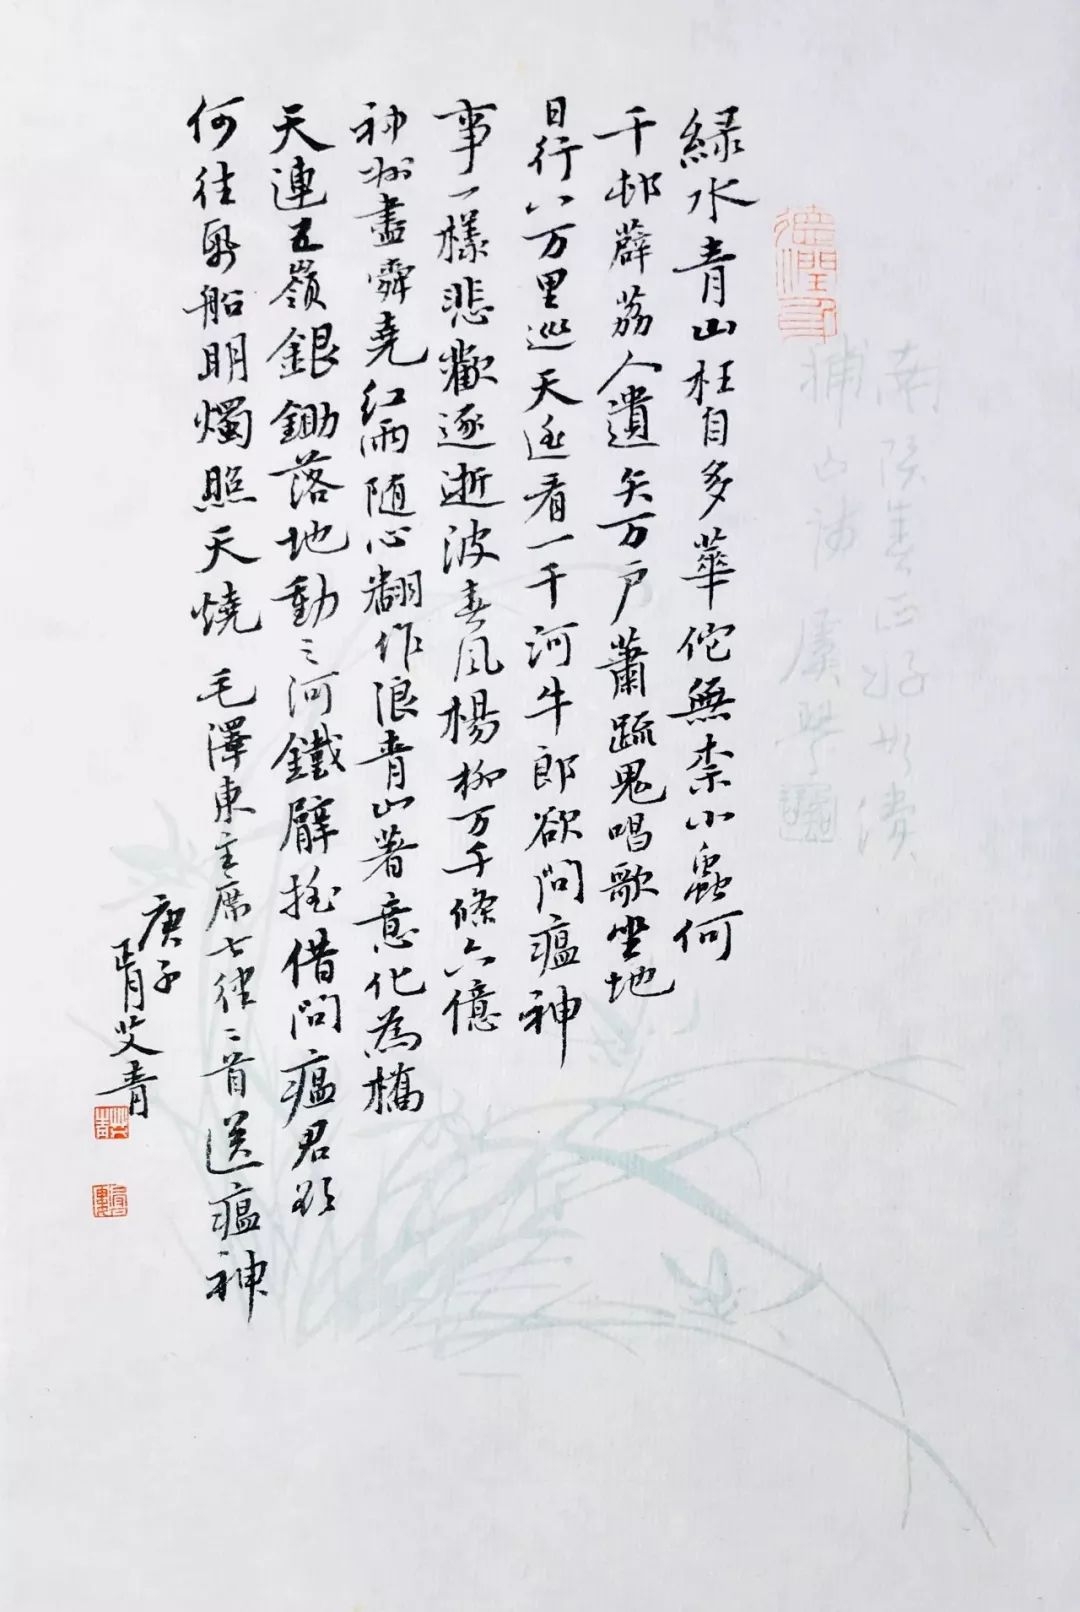 德潤身
綠水青山枉自多華佗無柰小蟲何
千邨薜荔人遺矢万戶蕭疏鬼唱歌坐地
日行八万里巡天遥看一千河牛郎欲問瘟神
事一樣悲歡逐逝波春風楊柳万千條六億
神州盡舜堯紅雨随心翻作浪青山著意化為橋
天連五嶺銀鋤落地動三河鐵臂摇借問瘟君欲
何往帋船明燭照天燒 毛澤東主席七律二首送瘟神
庚子
胥艾青
艾青